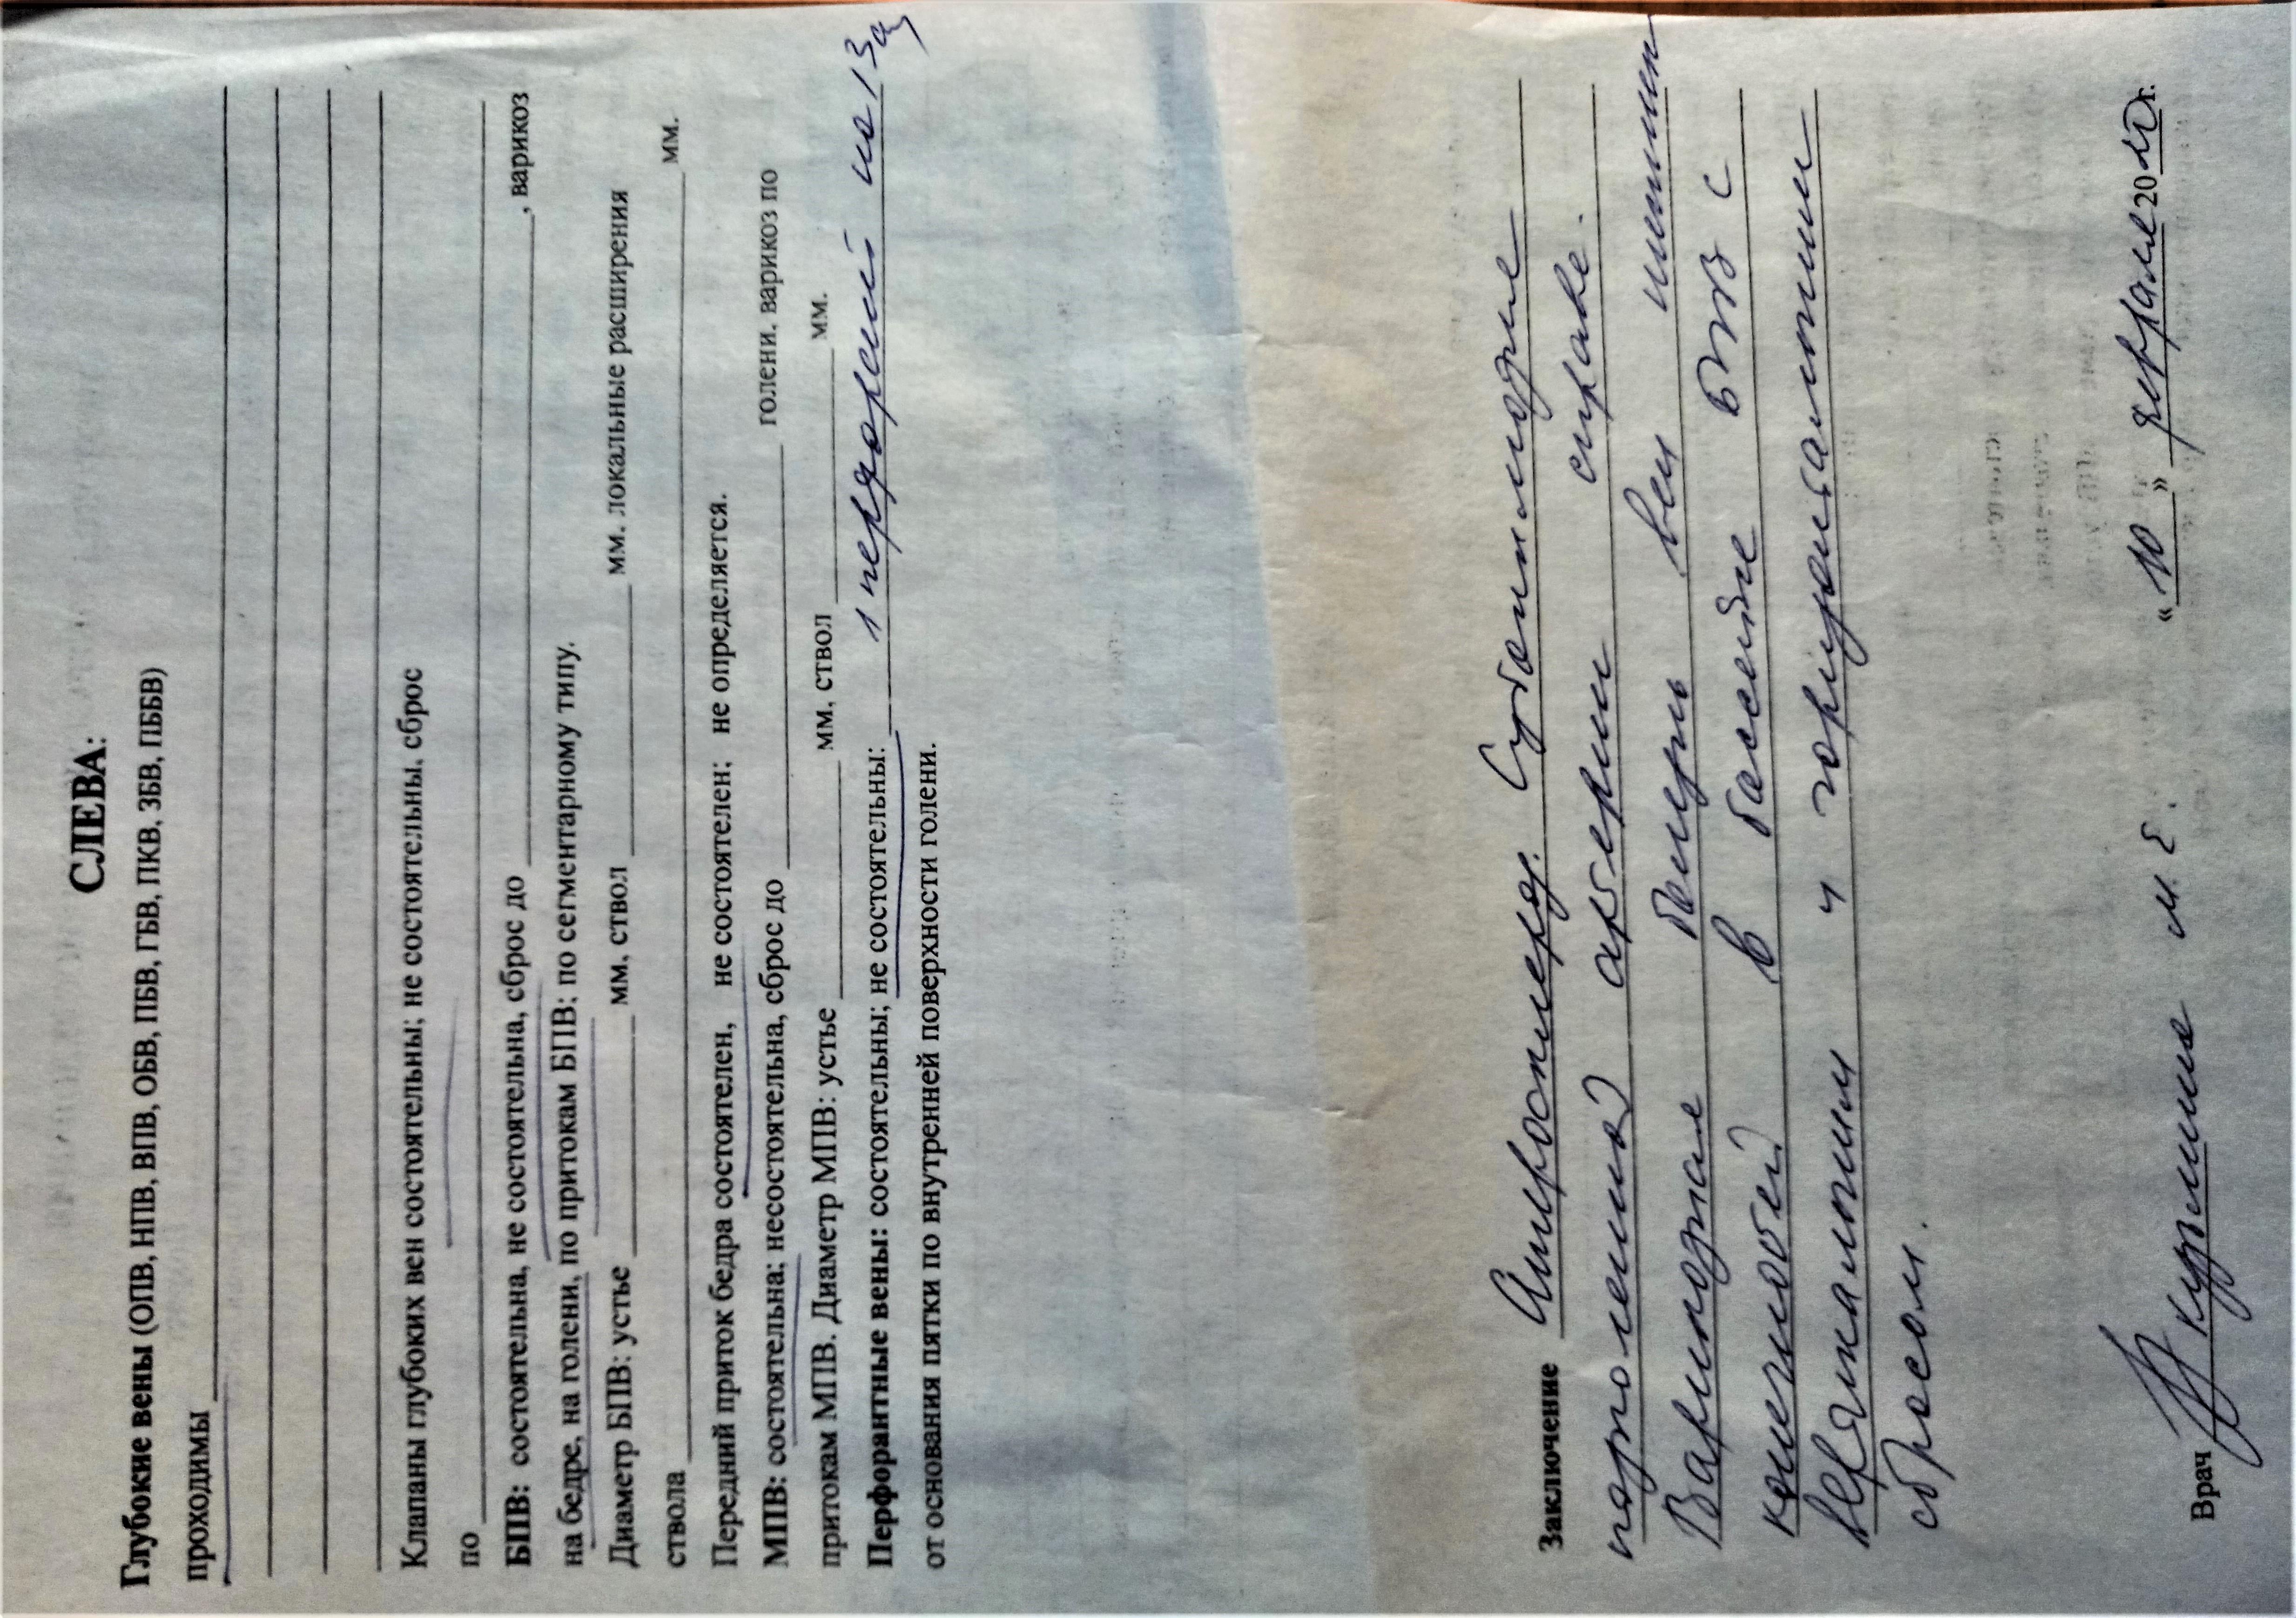 СЛЕВА:
Глубокие вены (ОПВ, НПВ, ВПВ, ОБВ, ПБВ, ГБВ, ПКВ, ЗБВ, ПББВ)
проходимы
Клапаны глубоких вен состоятельны; не состоятельны. сброс
по
БПВ: состоятельна, не состоятельна, сброс до , варикоз
на бедре, на голени, по притокам БПВ: по сегментарному типу.
Диаметр БПВ: устье мм, ствол мм. локальные расширения
ствола мм.
Передний приток бедра состоятелен, не состоятелен; не определяется.
МПВ: состоятельна; несостоятельна, сброс до голени. варикоз по
притокам МПВ. Диаметр МПВ: устье мм, ствол мм.
Перфорантные вены: состоятельны; не состоятельны: 1 перфорант на 13
от основания пятки по внутренней поверхности голени.
Заключение Атеросклероз. Субтотальное
подколенной артерии справа.
Варикозная болезнь вен нижних
конечностей в бассейне БПВ с
вертикальным и горизонтальным
сбросом.
Врач м Е. «10» февраля 2020г.